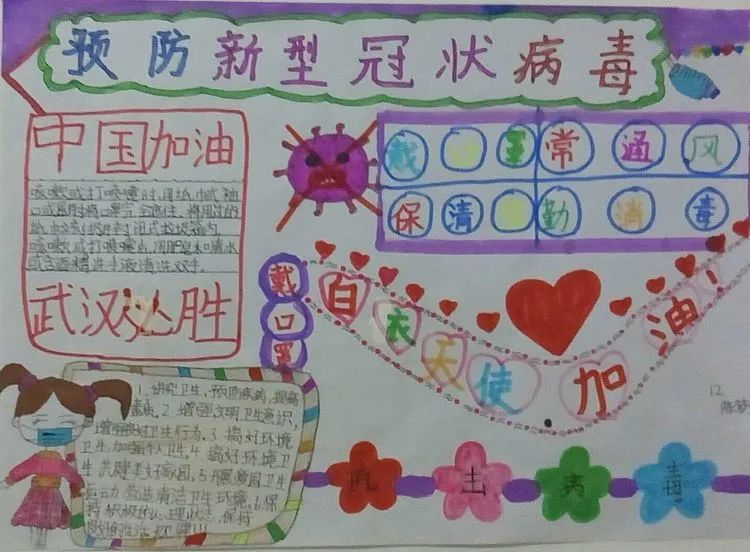 预防新型冠状病毒
中国加油
咳嗽或打喷嚏时,用纸巾或袖
口或屈肘将口鼻完全遮住,将用过的
咳嗽或打喷嚏后,用肥皂和清水
或含酒精洗手液清洗双手。
武汉必胜
戴 常通风
保清 勤消毒
戴口罩
白衣天使加油
1、讲究卫生,预防疾病,提高
素质,2、增强文明卫生意识,
卫生行为,3、搞好环境
卫生,加强个人卫生4、搞好环境卫
生共建美好家园,5、开展爱国卫生
运动,营造清洁卫生环境,6、保
持积极的心理状态,保持
12
病毒